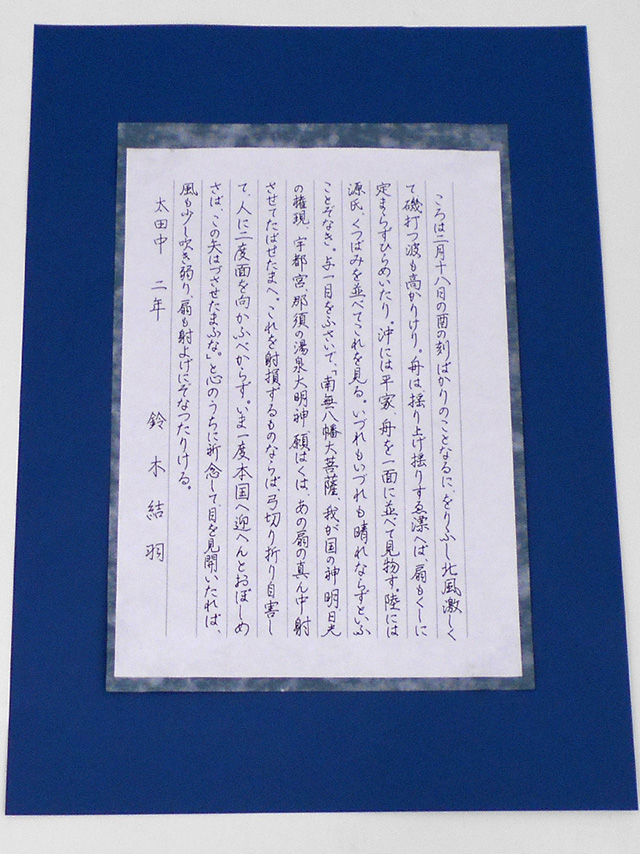 ころは二月十八日の酉の刻ばかりのことなるに、をりふし北風激しく
て磯打つ波も高かりけり。舟は揺り上げ揺りすゑ漂へば、扇もくしに
定まらずひらめいたり。沖には平家、舟を一面に並べて見物す。陸には
源氏、くつばみを並べてこれを見る。いづれもいづれも晴れならずといふ
ことぞなき。与一目をふさいで、「南無八幡大菩薩、我が国の神明日光
の権現 宇都宮、那須の湯泉大明神、願はくは、あの扇の真ん中射
させてたばせたまへ。これを射損ずるものならば、弓切り折り自害し
て、人に二度面を向かふべからず。いま一度本国へ迎へんとおぼしめ
さば、この矢はづさせたまふな。」と心のうちに祈念して、目を見開いたれば、
風も少し吹き弱り、扇も射よげにぞなつたりける。
太田中 二年 鈴木結羽